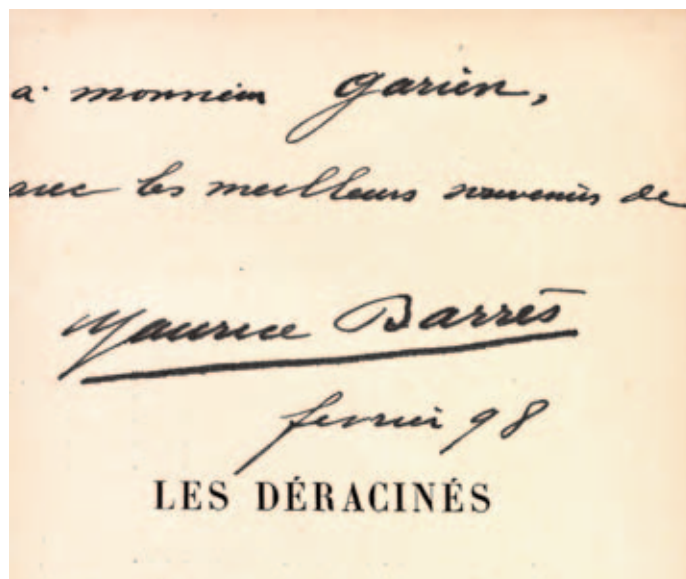 à monsieur Garien,
avec les meilleurs souvenirs de
Maurice Barrès
fevrier 98
LES DÉRACINÉS